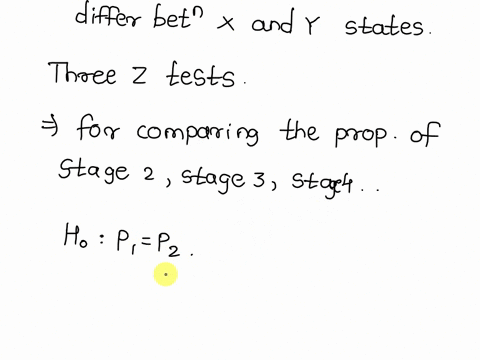 differ betⁿ X and Y states.
Three Z tests.
⇒ for comparing the prop. of
stage 2, stage 3, stage4..
H₀ : P₁ = P₂.